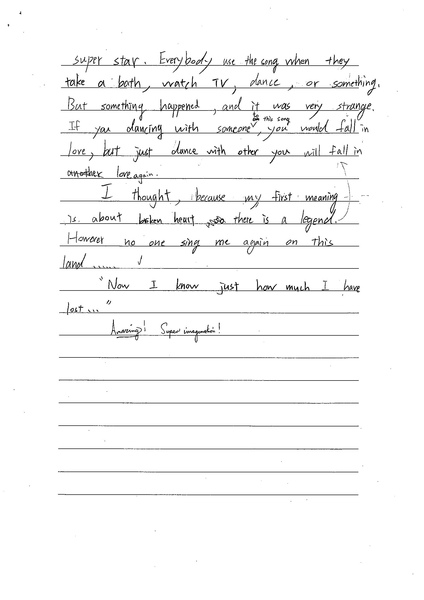 super star. Everybody use the song when they
take a bath, watch TV, dance, or something.
But something happened, and it was very strange.
to this song
If you dancing with someone, you would fall in
love, but just dance with other you will fall in
another love again.
I thought, because my first meaning
is about broken heart so there is a legend.
However no one sing me again on this
land ......
"Now I know just how much I have
lost..."
Amazing! Super imagination!